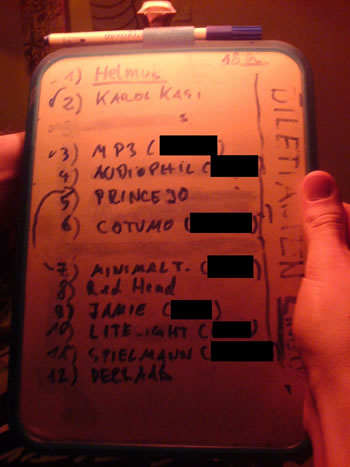 1) Helmus
2) KAROL KASI
3) MP3 (
4) AUDIOPHIL (
5) PRINCE JO
6) COTUMO (
7) MINIMAL T. (
8) Red Head
9) JAMIE ( )
10) LITELIGHT ( )
11) SPIELMANN (
12) DERLAAG
DILETTANTEN